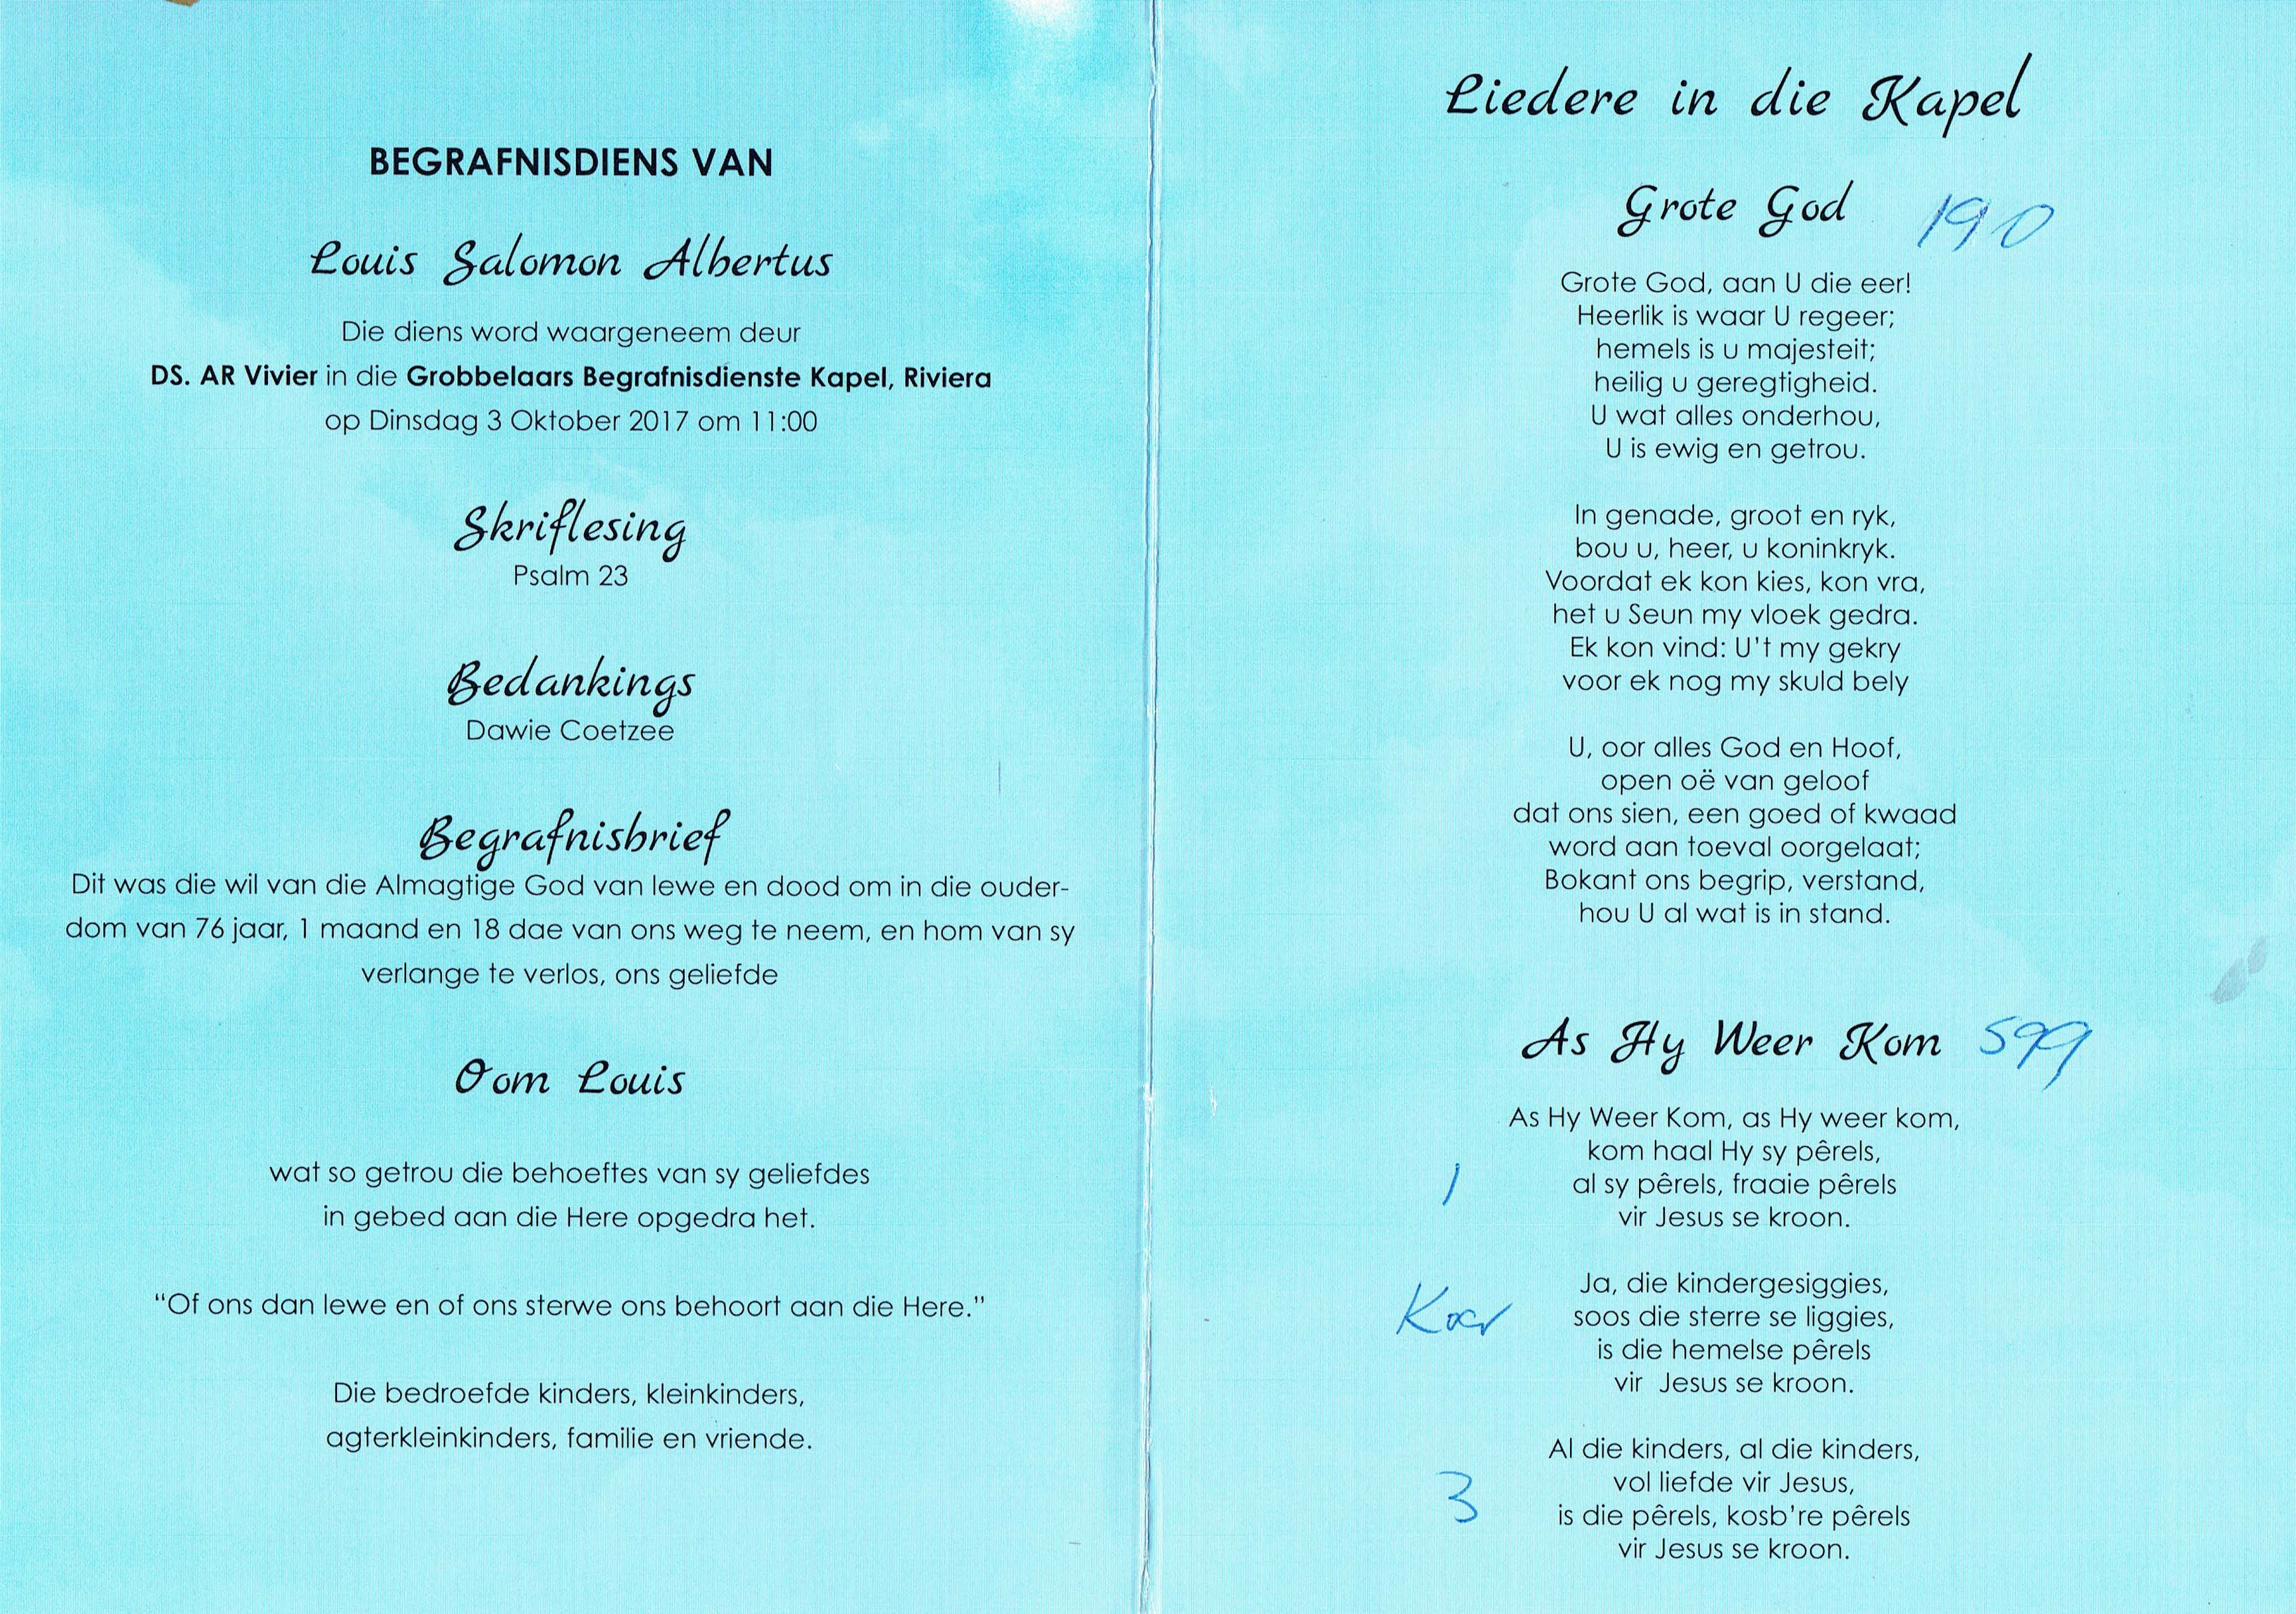 BEGRAFNISDIENS VAN
Louis Salomon Albertus
Die diens word waargeneem deur
DS. AR Vivier in die Grobbelaars Begrafnisdienste Kapel, Riviera
op Dinsdag 3 Oktober 2017 om 11:00
Skriflesing
Psalm 23
Bedankings
Dawie Coetzee
Begrafnisbrief
Dit was die wil van die Almagtige God van lewe en dood om in die ouder-
dom van 76 jaar, 1 maand en 18 dae van ons weg te neem, en hom van sy
verlange te verlos, ons geliefde
Oom Louis
wat so getrou die behoeftes van sy geliefdes
in gebed aan die Here opgedra het.
“Of ons dan lewe en of ons sterwe ons behoort aan die Here.”
Die bedroefde kinders, kleinkinders,
agterkleinkinders, familie en vriende.
Liedere in die Kapel
Grote God 190
Grote God, aan U die eer!
Heerlik is waar U regeer;
hemels is u majesteit;
heilig u geregtigheid.
U wat alles onderhou,
U is ewig en getrou.
In genade, groot en ryk,
bou u, heer, u koninkryk.
Voordat ek kon kies, kon vra,
het u Seun my vloek gedra.
Ek kon vind: U't my gekry
voor ek nog my skuld bely
U, oor alles God en Hoof,
open oë van geloof
dat ons sien, een goed of kwaad
word aan toeval oorgelaat;
Bokant ons begrip, verstand,
hou U al wat is in stand.
As Hy Weer Kom 599
As Hy Weer Kom, as Hy weer kom,
kom haal Hy sy pêrels,
1 al sy pêrels, fraaie pêrels
vir Jesus se kroon.
Ja, die kindergesiggies,
Koor soos die sterre se liggies,
is die hemelse pêrels
vir Jesus se kroon.
Al die kinders, al die kinders,
vol liefde vir Jesus,
3 is die pêrels, kosb're pêrels
vir Jesus se kroon.